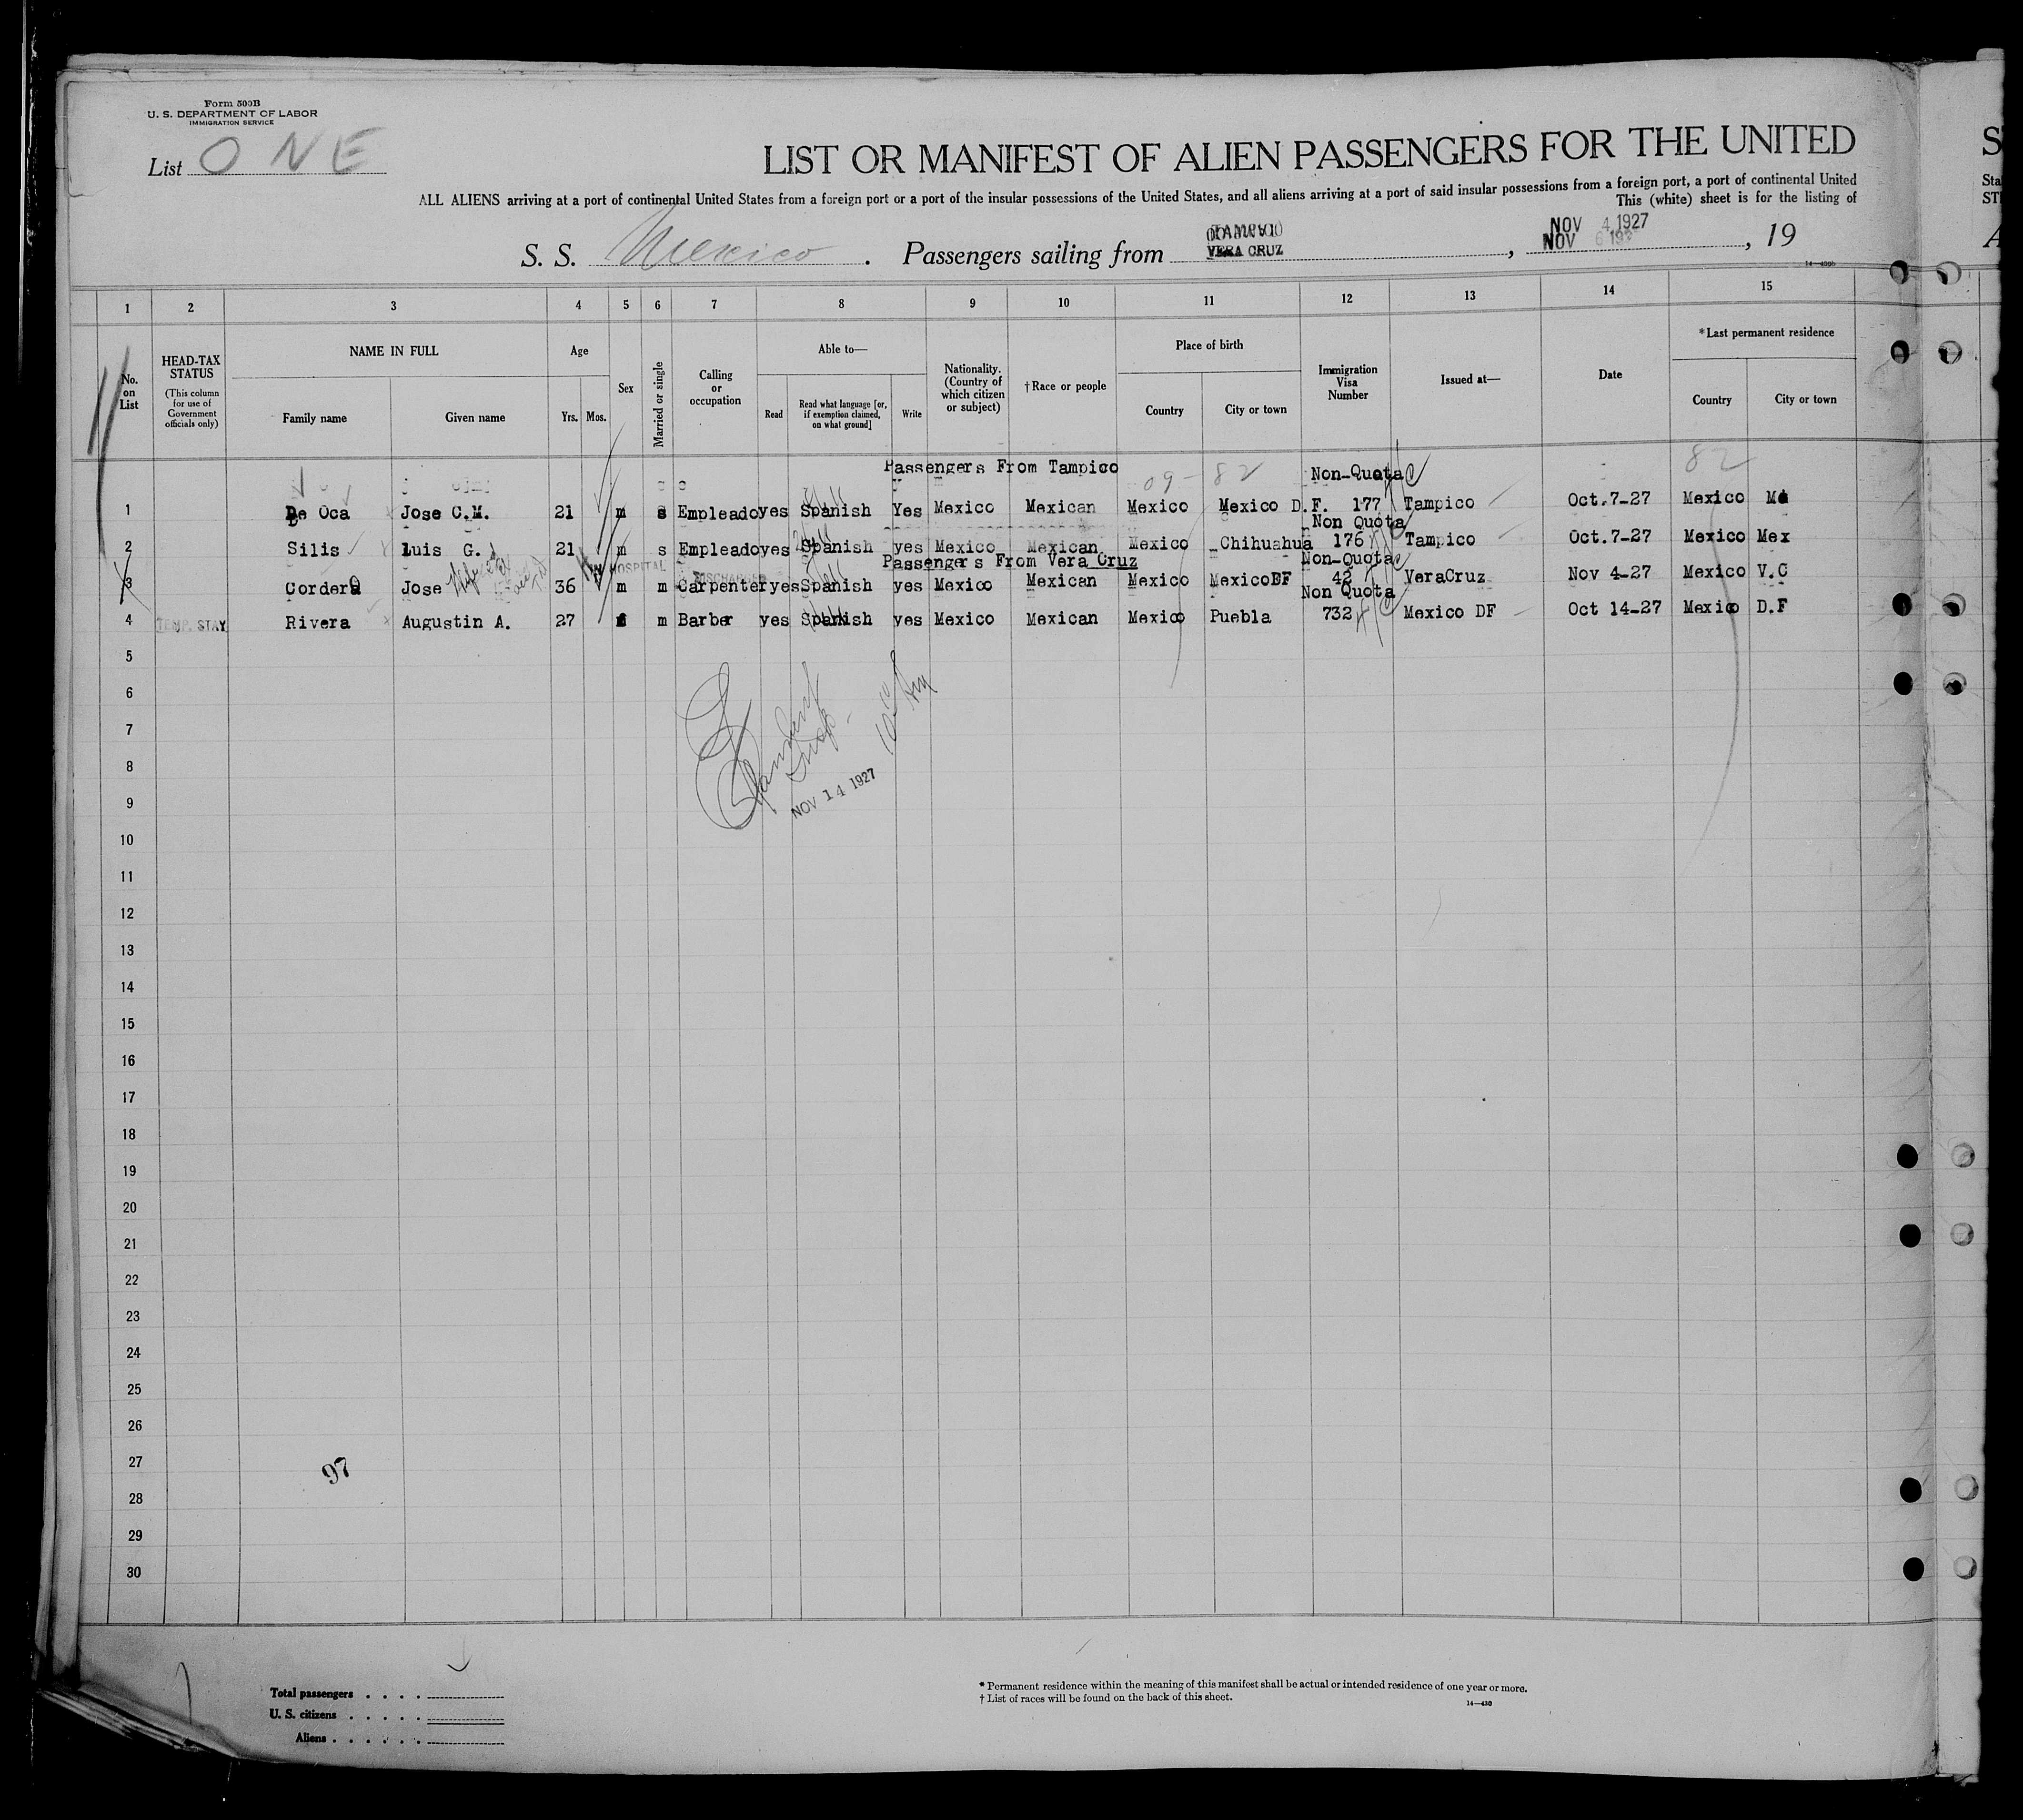 Form 500B
U. S. DEPARTMENT OF LABOR
IMMIGRATION SERVICE
List ONE
LIST OR MANIFEST OF ALIEN PASSENGERS FOR THE UNITED
ALL ALIENS arriving at a port of continental United States from a foreign port or a port of the insular possessions of the United States, and all aliens arriving at a port of said insular possessions from a foreign port, a port of continental United
This (white) sheet is for the listing of
NOV 4 1927
TAMPICO
S. S. Mexico . Passengers sailing from VERA CRUZ , NOV 6 192 , 19
1 2 3 4 5 6 7 8 9 10 11 12 13 14 15
No. on List
HEAD-TAX STATUS
(This column for use of Government officials only)
NAME IN FULL
Family name
Given name
Age
Yrs. Mos.
Sex
Married or single
Calling or occupation
Able to—
Read
Read what language [or, if exemption claimed, on what ground]
Write
Nationality. (Country of which citizen or subject)
†Race or people
Place of birth
Country
City or town
Immigration Visa Number
Issued at—
Date
*Last permanent residence
Country
City or town
Passengers From Tampico 09 - 82 Non-Quota 82
1 De Oca Jose C.M. 21 m s Empleado yes Spanish Yes Mexico Mexican Mexico Mexico D.F. 177 Tampico Oct.7-27 Mexico
Non Quota
2 Silis Luis G. 21 m s Empleado yes Spanish yes Mexico Mexican Mexico Chihuahua 176 Tampico Oct.7-27 Mexico Mex
HOSPITAL Passengers From Vera Cruz Non-Quota
DISCHARGED
3 Cordero Jose 36 m m Carpenter yes Spanish yes Mexico Mexican Mexico Mexico DF 42 VeraCruz Nov 4-27 Mexico V.C
Non Quota
4 TEMP. STAY Rivera Augustin A. 27 m Barber yes Spanish yes Mexico Mexican Mexico Puebla 732 Mexico DF Oct 14-27 Mexico D.F
5
6
7
8
NOV 14 1927
9
10
11
12
13
14
15
16
17
18
19
20
21
22
23
24
25
26
27
97
28
29
30
Total passengers . . . .
U. S. citizens . . . . .
Aliens . . . . . .
* Permanent residence within the meaning of this manifest shall be actual or intended residence of one year or more.
† List of races will be found on the back of this sheet.
14—430